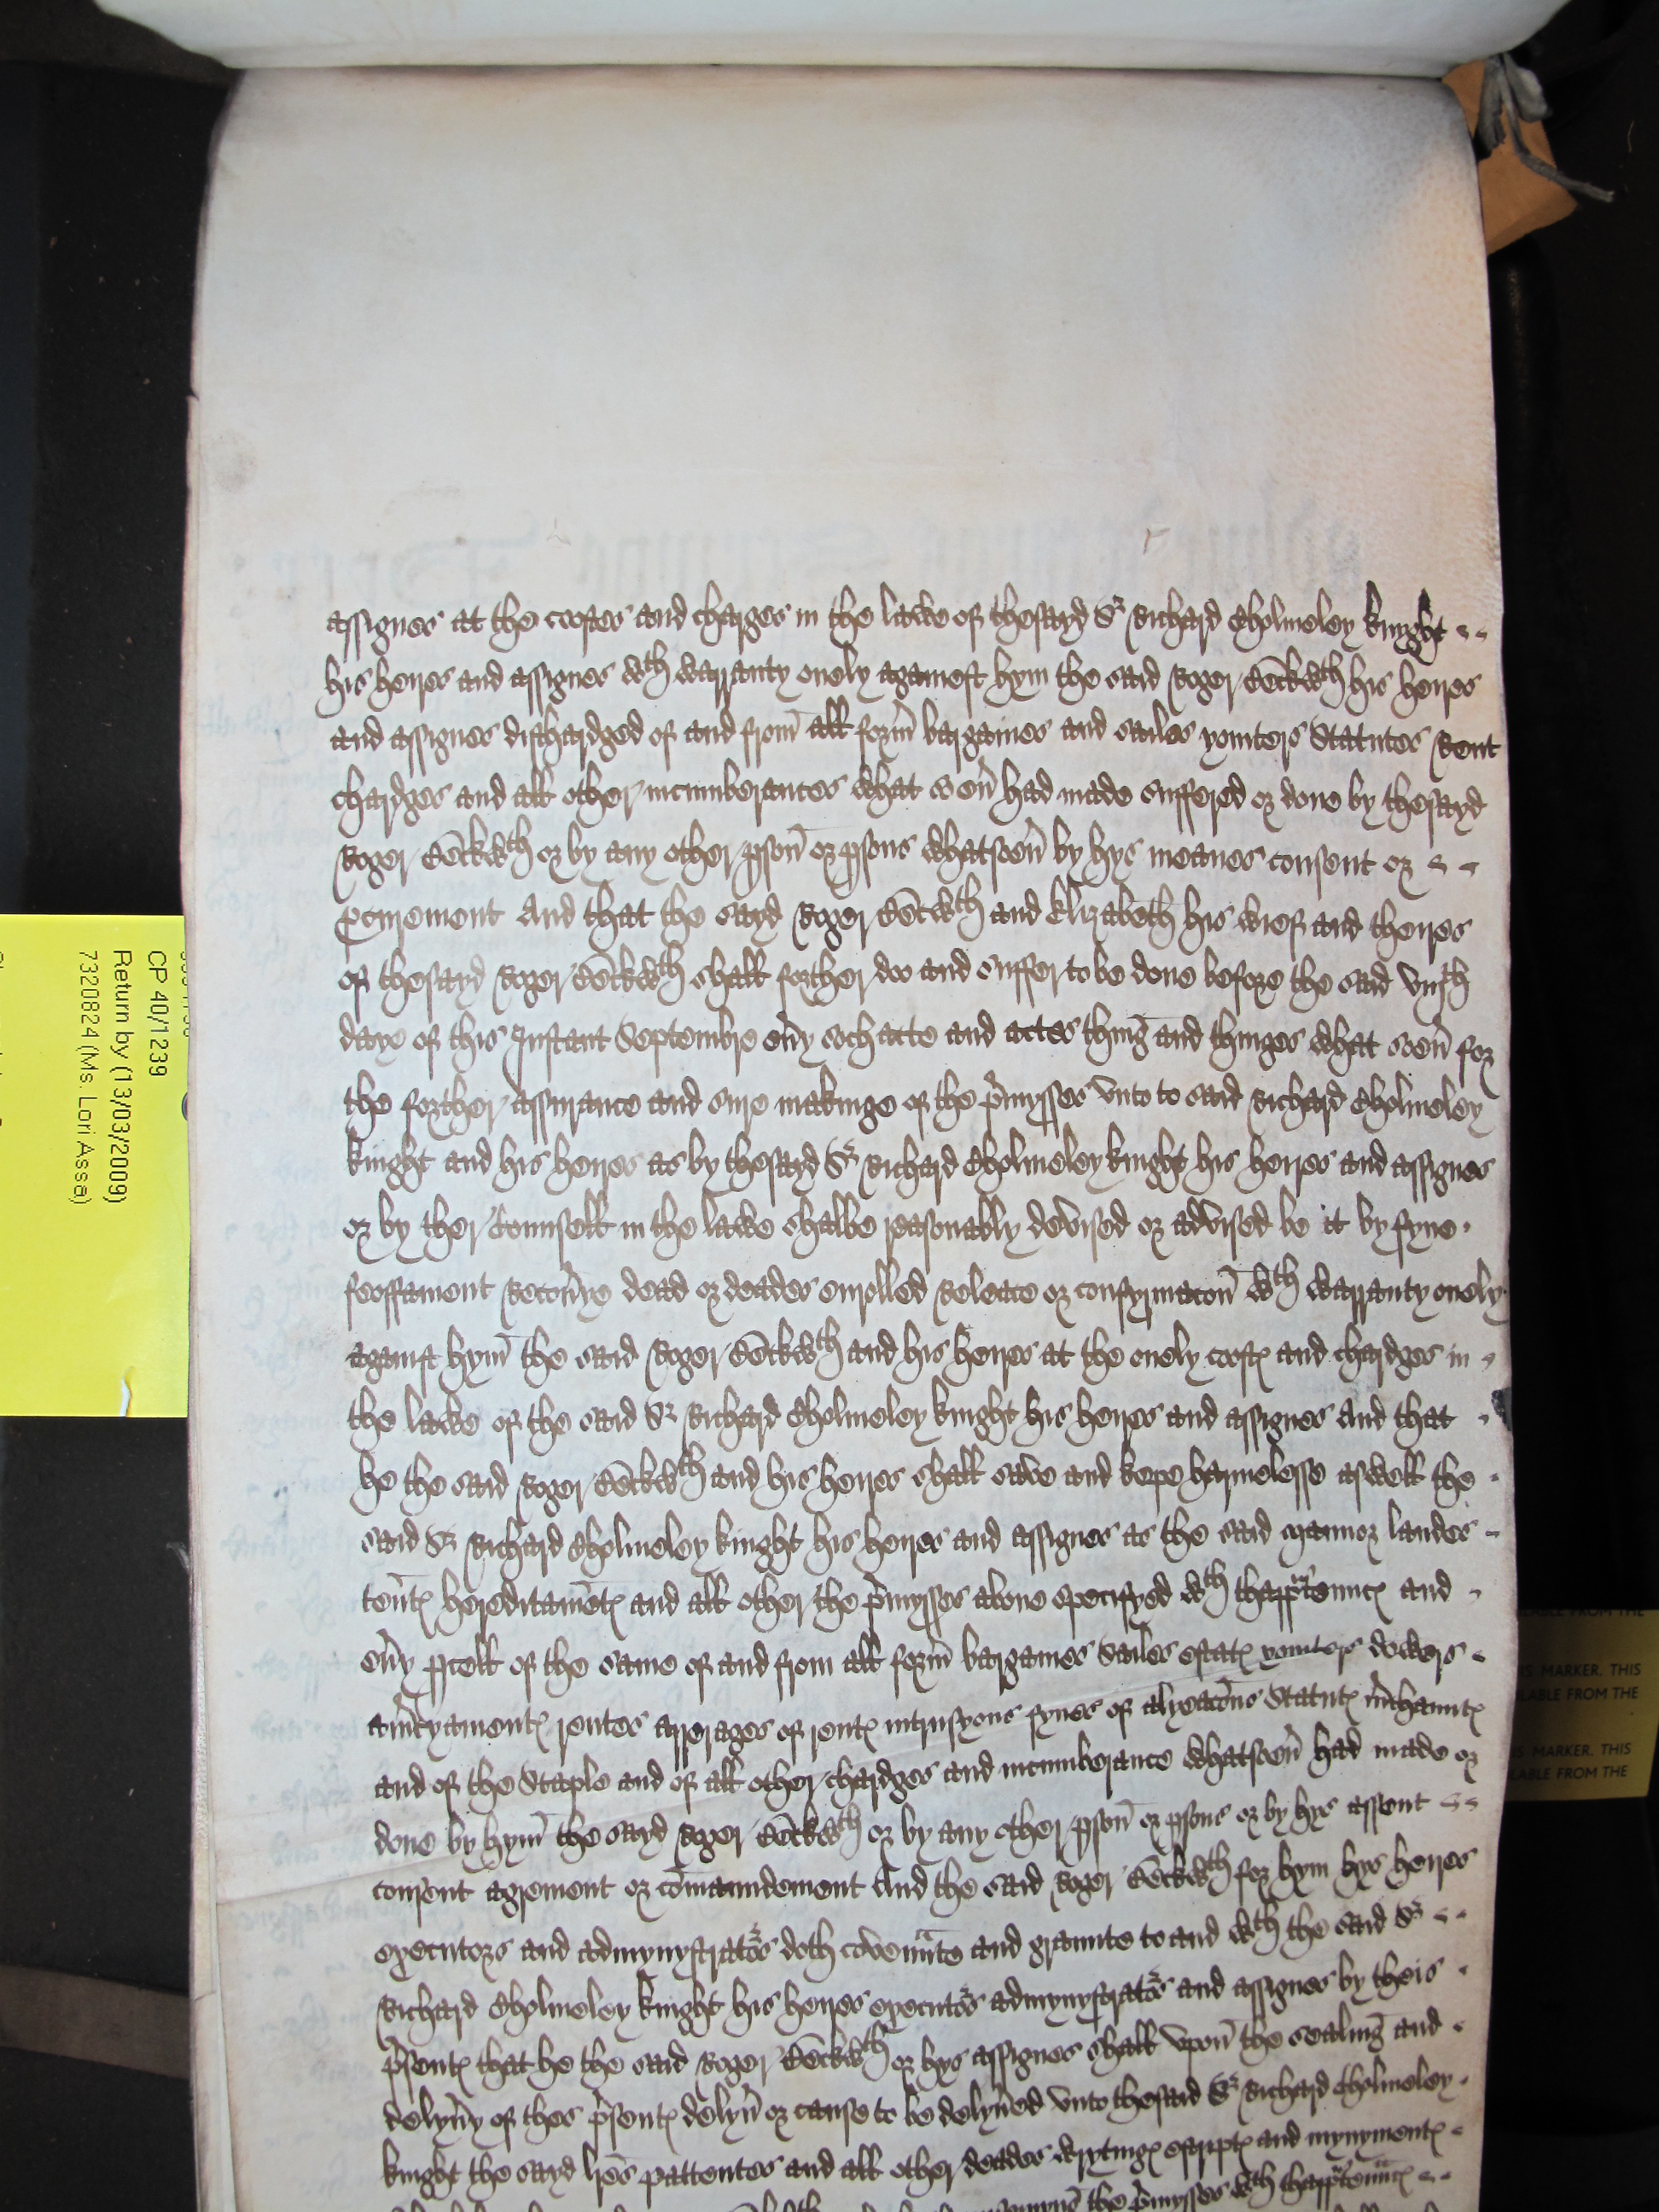 assignes at the costes and charges in the lawe of thesayd Sr Richard Cholmeley knyght
his heires and assignes wth warranty onely ageinest hym the said Roger Béckwth his heires
and assignes dischardged of and from all form̄ bargaines and sailes yointers Statutes Rent
chardges and all other incumberances what soeu̓ had made suffered or done by thesayd
Roger Beckwth or by any other pson or psons whatsoeu̓ by hys meanes consent or
And that the sayd Roger Becwth and Elizabeth his wief and theires
of thesayd Roger Beckwth shall forther doo and suffer to be done before the said viijth
daye of this Instant Septembre eu̓y soch acte and actes thing and thinges what soeu̓ for
the forther assurance and sure makinge of the p̓mysses vnto to said Richard Cholmeley
knight and his heires as by thesayd Sr Richard Cholmeley knight his heires and assignes
or by ther Counsell in the lawe shalbe reasonably devised or advised be it by fyne
feoffament Recou̓ye dead or deades enrolled Releace or confyrmacon wth warranty onely
against hym the said Roger Beckwth and his heires at the onely cost℮ and chardges in
the lawe of the said Sr Richard Cholmeley knight his heires and assignes And that
he the said Roger Beckwth and his heires shall save and kepe harmelesse aswell the
said Sr Richard Cholmeley knight his heires and assignes as the said mannor landes
ten̄t℮ hereditamēt℮ and all other the p̓mysses above specifyed wth thapp̱rtennc℮ and
eu̓y pcell of the same of and from all form̄ bargaines Sailes estat℮ yointers dowers
am̓cyament℮ rentes arrerages of rent℮ intrusyons fynes of alyeacons Statut℮ m̓chaunt℮
and of the Staple and of all other chardges and incumberance whatsoeu̓ had made or
done by hym the sayd Roger Beckwth or by any other pson or psons or by hys assent
consent agrement or comaundement And the said Roger Beckwth for hym hys heires
executors and admynystrators doth covennte and graunte to and wth the said Sr
Richard Cholmeley knight his heires executors admynystrators and assignes by theis
p̓sent℮ that he the said Roger Beckwth or hys assignes shall upon the sealing and
delyu̓y of thes p̓sent℮ delyu̓ or cause to be delyu̓ed vnto thesaid Sr Richard Cholmeley
knight the sayd lres pattentes and all other deades wryting℮ escript℮ and mynyment℮
the p̓mysses wth thapp̱rtennc℮
CP 40/1239
Return by (13/03/2009)
7320824 (Ms. Lori Assa)
MARKER. THIS
LABLE FROM THE
MARKER. THIS
LABLE FROM THE